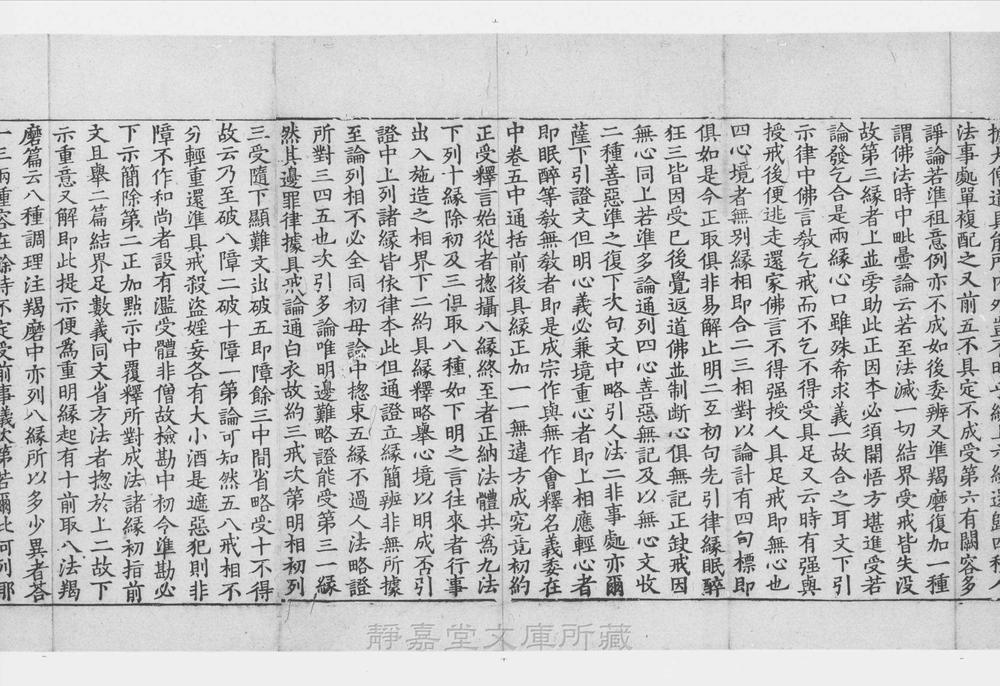 法事處單複配之又前五不具定不成受第六有闕容多
諍論若準祖意例亦不成如後委辨又準羯磨復加一種
謂佛法時中毗曇論云若至法滅一切結界受戒皆失没
故第三緣者上並旁助此正因本必須開悟方堪進受若
論發乞合是兩緣心口雖殊希求義一故合之耳文下引
示律中佛言教乞戒而不乞不得受具足又云時有强與
授戒後便逃走還家佛言不得强授人具足戒即無心也
四心境者無別緣相即合二三相對以論計有四句標即
俱如是今正取俱非易解止明二互初句先引律緣眠醉
狂三皆因受已後覺返道佛並制斷心俱無記正缺戒因
無心同上若準多論通列四心善惡無記及以無心文收
二種善惡準之復下次句文中略引人法二非事處亦爾
薩下引證文但明心義必兼境重心者即上相應輕心者
即眠醉等教無教者即是成宗作與無作會釋名義委在
中卷五中通括前後具緣正加一一無違方成究竟初約
正受釋言始從者揔攝八緣終至者正納法體共爲九法
下列十緣除初及三但取八種如下明之言往來者行事
出入施造之相界下二約具緣釋略舉心境以明成否引
證中上列諸緣皆依律本此但通證立緣簡辨非無所據
至論列相不必全同初母論中揔束五緣不過人法略證
所對三四五也次引多論唯明邊難略證能受第三一緣
然其邊罪律據具戒論通白衣故約三戒次第明相初列
三受隨下顯難文出破五即障餘三中間省略受十不得
故云乃至破八障二破十障一第論可知然五八戒相不
分輕重還準具戒殺盜婬妄各有大小酒是遮惡犯則非
障不作和尚者設有濫受體非僧故檢勘中初令準勘必
下示簡除第二正加點示中覆釋所對成法諸緣初指前
文且舉二篇結界足數義同文省方法者揔於上二故下
示重意又解即此提示便爲重明緣起有十前取八法羯
磨篇云八種調理注羯磨中亦列八緣所以多少異者荅
靜嘉堂文庫所藏